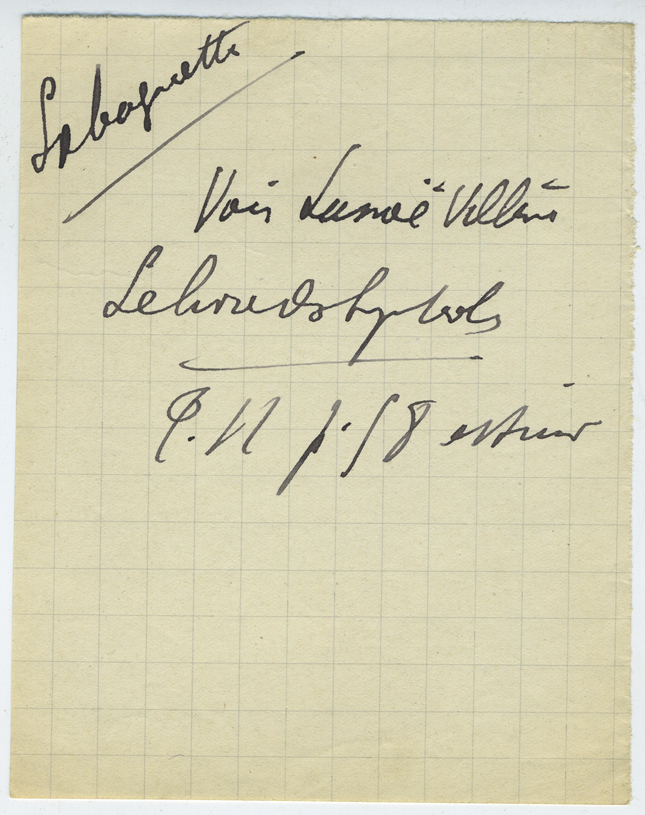 La baguette
Voir Lanoë Villène
Le livre des symboles
T. II p. 58 et suiv